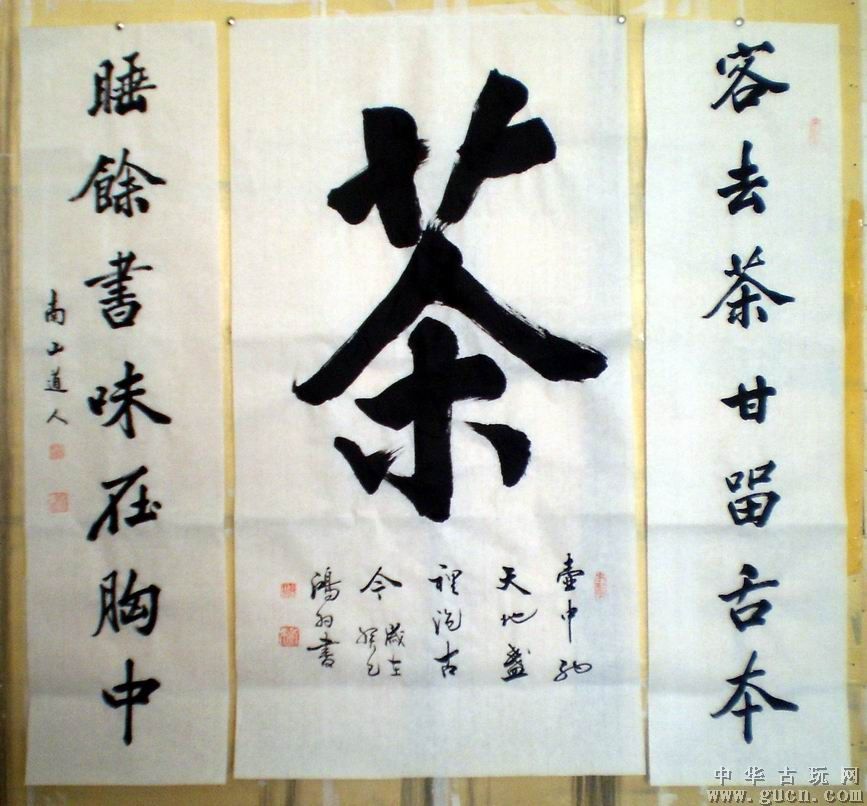 客去茶甘留舌本
茶
壺中
天地盞
裡泡古
今 歲在癸巳
鴻 書
睡餘書味在胸中
南山道人
中华古玩网
www.gucn.com